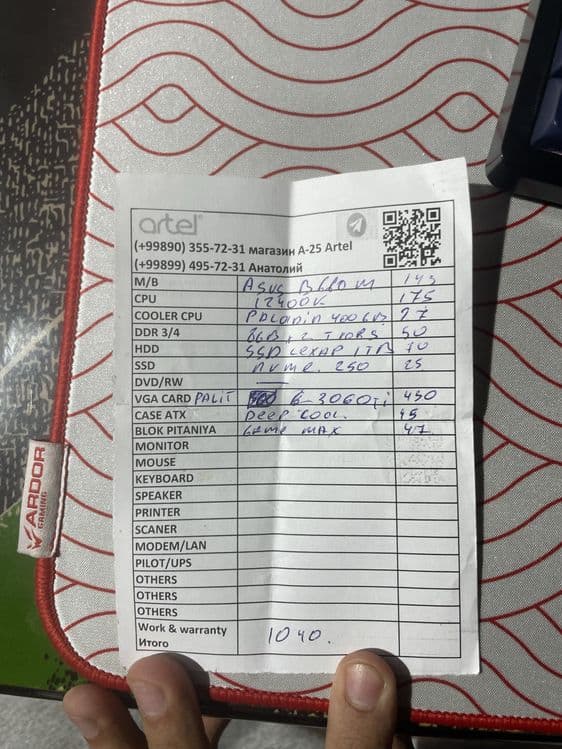 artel
(+99890) 355-72-31 магазин A-25 Artel
(+99899) 495-72-31 Анатолий
M/B ASUS B660M 145
CPU 12400K 175
COOLER CPU PALADIN 400 27
DDR 3/4 8GB x 2 50
HDD SSD LEXAR 1TB 70
SSD nvme. 250 25
DVD/RW —
VGA CARD PALIT 6-3060Ti 450
CASE ATX DEEP COOL. 45
BLOK PITANIYA GAME MAX 47
MONITOR
MOUSE
KEYBOARD
SPEAKER
PRINTER
SCANER
MODEM/LAN
PILOT/UPS
OTHERS
OTHERS
OTHERS
Work & warranty
Итого 1040.
ARDOR
GAMING